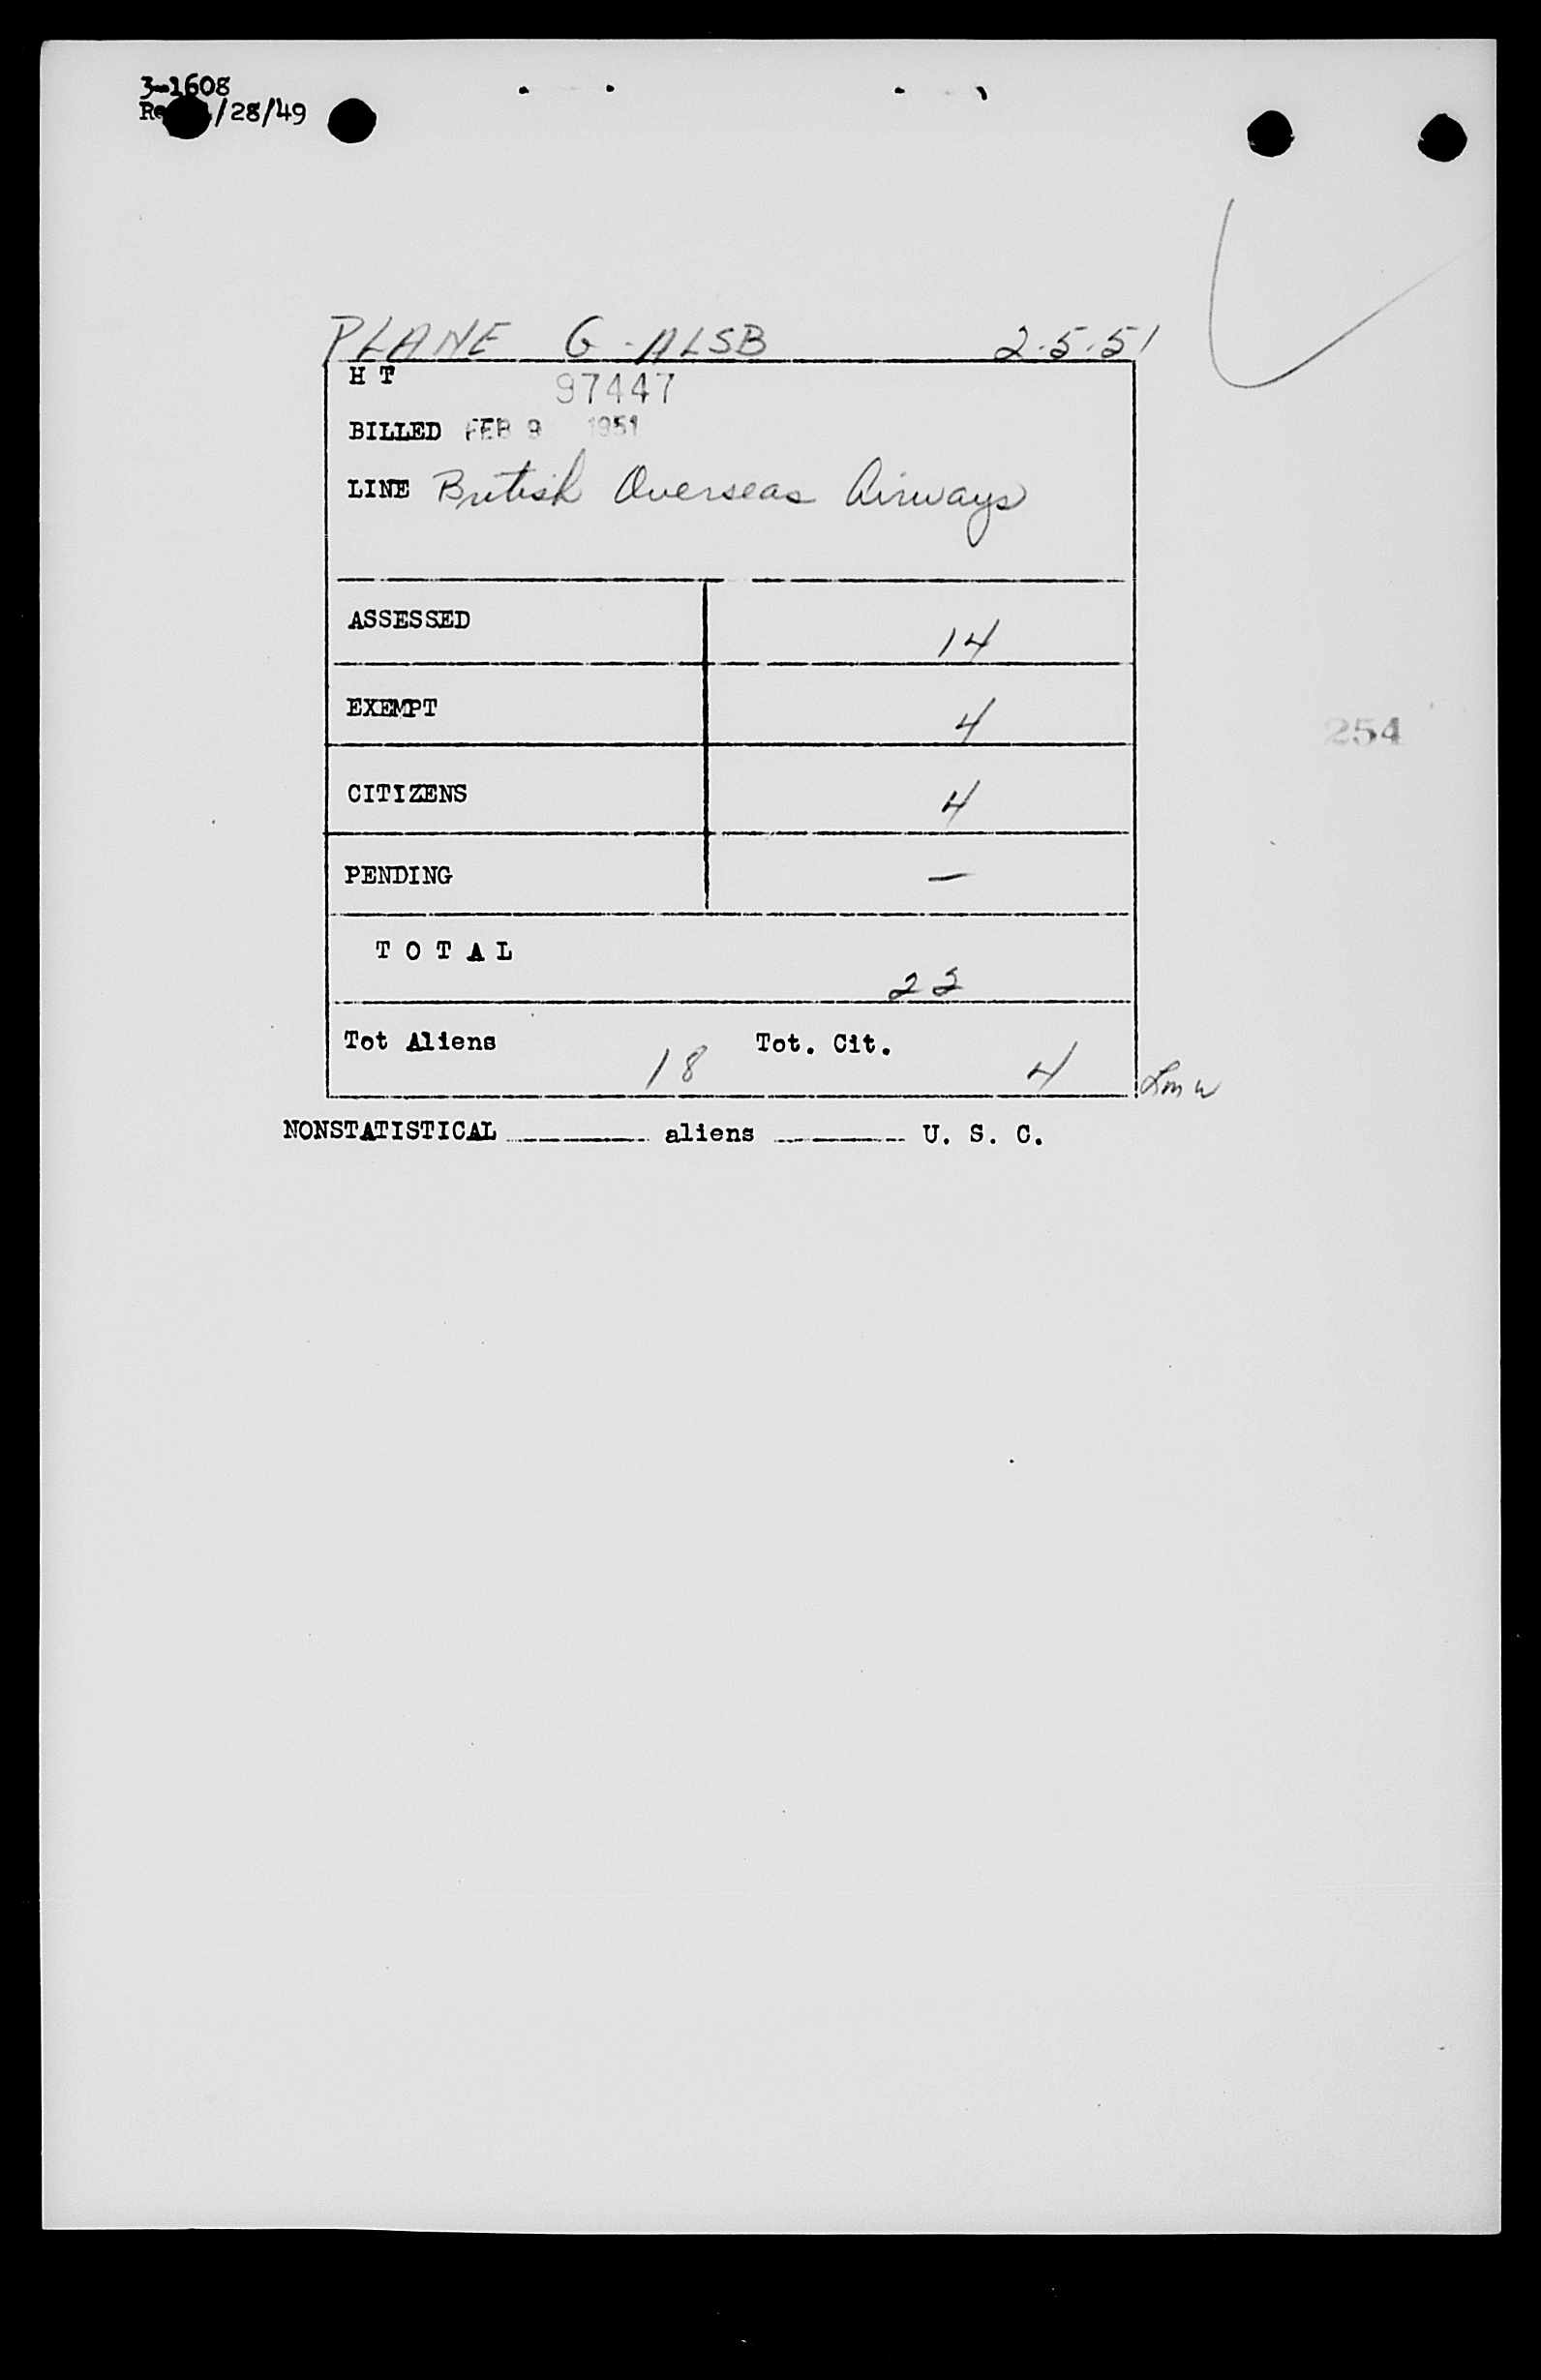 3-1608
/28/49
PLANE G-ALSB 2.5.51
H T 97447
BILLED FEB 9 1951
LINE British Overseas Airways
ASSESSED 14
EXEMPT 4
254
CITIZENS 4
PENDING —
T O T A L 22
Tot Aliens 18 Tot. Cit. 4
NONSTATISTICAL ________ aliens ________ U. S. C.